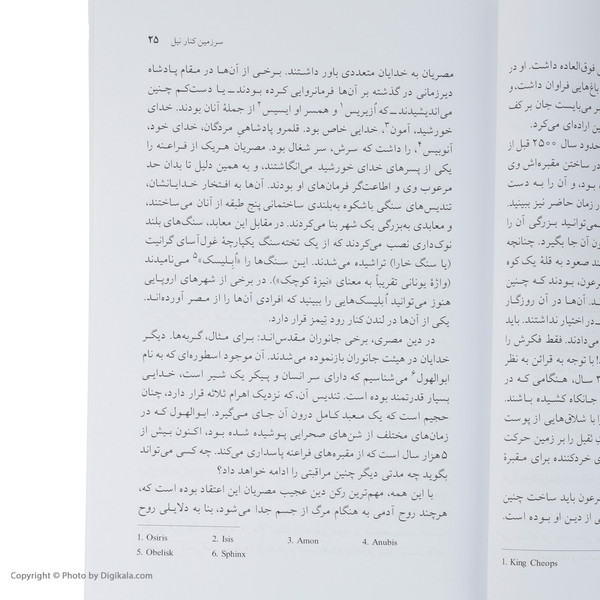 سرزمین کنار نیل ۲۵
مصریان به خدایان متعددی باور داشتند. برخی از آن‌ها در مقام پادشاه
دیرزمانی در گذشته بر آن‌ها فرمانروایی کرده بودند ــ یا دست‌کم چنین
می‌اندیشیدند ــ که اُزیریس۱ و همسر او ایسیس۲ از جملهٔ آنان بودند. خدای
خورشید، آمون۳، خدایی خاص بود. قلمرو پادشاهیِ مردگان، خدای خود،
آنوبیس۴، را داشت که سرش، سر شغال بود. مصریان هریک از فراعنه را
یکی از پسرهای خدای خورشید می‌انگاشتند، و به همین دلیل تا بدان حد
مرعوب وی و اطاعت‌گر فرمان‌های او بودند. آن‌ها به افتخار خدایانشان،
تندیس‌های سنگی باشکوه به‌بلندی ساختمانی پنج طبقه از آنان می‌ساختند،
و معابدی به‌بزرگی یک شهر بنا می‌کردند. در مقابل این معابد، سنگ‌های بلند
نوک‌داری نصب می‌کردند که از یک تخته‌سنگ یکپارچهٔ غول‌آسای گرانیت
(یا سنگ خارا) تراشیده می‌شدند. این سنگ‌ها را «اُبلیسک»۵ می‌نامیدند
(واژهٔ یونانی تقریباً به معنای «نیزهٔ کوچک»). در برخی از شهرهای اروپایی
هنوز می‌توانید اُبلیسک‌هایی را ببینید که افرادی آن‌ها را از مصر آورده‌اند.
یکی از آن‌ها در لندن کنار رود تِیمز قرار دارد.
در دین مصری، برخی جانوران مقدس‌اند: برای مثال، گربه‌ها. دیگر
خدایان در هیئت جانوران بازنموده می‌شدند. آن موجود اسطوره‌ای که به نام
ابوالهول۶ می‌شناسیم که دارای سر انسان و پیکر یک شیر است، خدایی
بسیار قدرتمند بوده است. تندیس آن، که نزدیک اهرام ثلاثه قرار دارد، چنان
حجیم است که یک معبد کامل درون آن جای می‌گیرد. ابوالهول که در
زمان‌های مختلف از شن‌های صحرایی پوشیده شده بود، اکنون بیش از
۵ هزار سال است که از مقبره‌های فراعنه پاسداری می‌کند. چه کسی می‌تواند
بگوید چه مدتی دیگر چنین مراقبتی را ادامه خواهد داد؟
با این همه، مهم‌ترین رکن دین عجیب مصریان این اعتقاد بوده است که،
هرچند روح آدمی به هنگام مرگ از جسم جدا می‌شود، بنا به دلایلی روح
1. Osiris 2. Isis 3. Amon 4. Anubis
5. Obelisk 6. Sphinx
فوق‌العاده داشت. او در
باغ‌هایی فراوان داشت، و
می‌بایست جان بر کف
اراده‌ای می‌کرد.
حدود سال ۲۵۰۰ قبل از
در ساختن مقبره‌اش وی
بود، و آن را به دست
زمان حاضر نیز ببینید.
می‌توانید بزرگی آن را
آن جا بگیرد. چنانچه
صعود به قلهٔ یک کوه
فرعون، بودند که چنین
آن‌ها در آن روزگار
اختیار نداشتند. باید
می‌دادند. فقط فکرش را
با توجه به قرائن به نظر
سال، هنگامی که در
جانکاه کشیده باشند.
با شلاق‌هایی از پوست
ثقیل را بر زمین حرکت
خردکننده برای مقبرهٔ
فرعون باید ساخت چنین
از دین او بوده است.
1. King Cheops
Copyright © Photo by Digikala.com